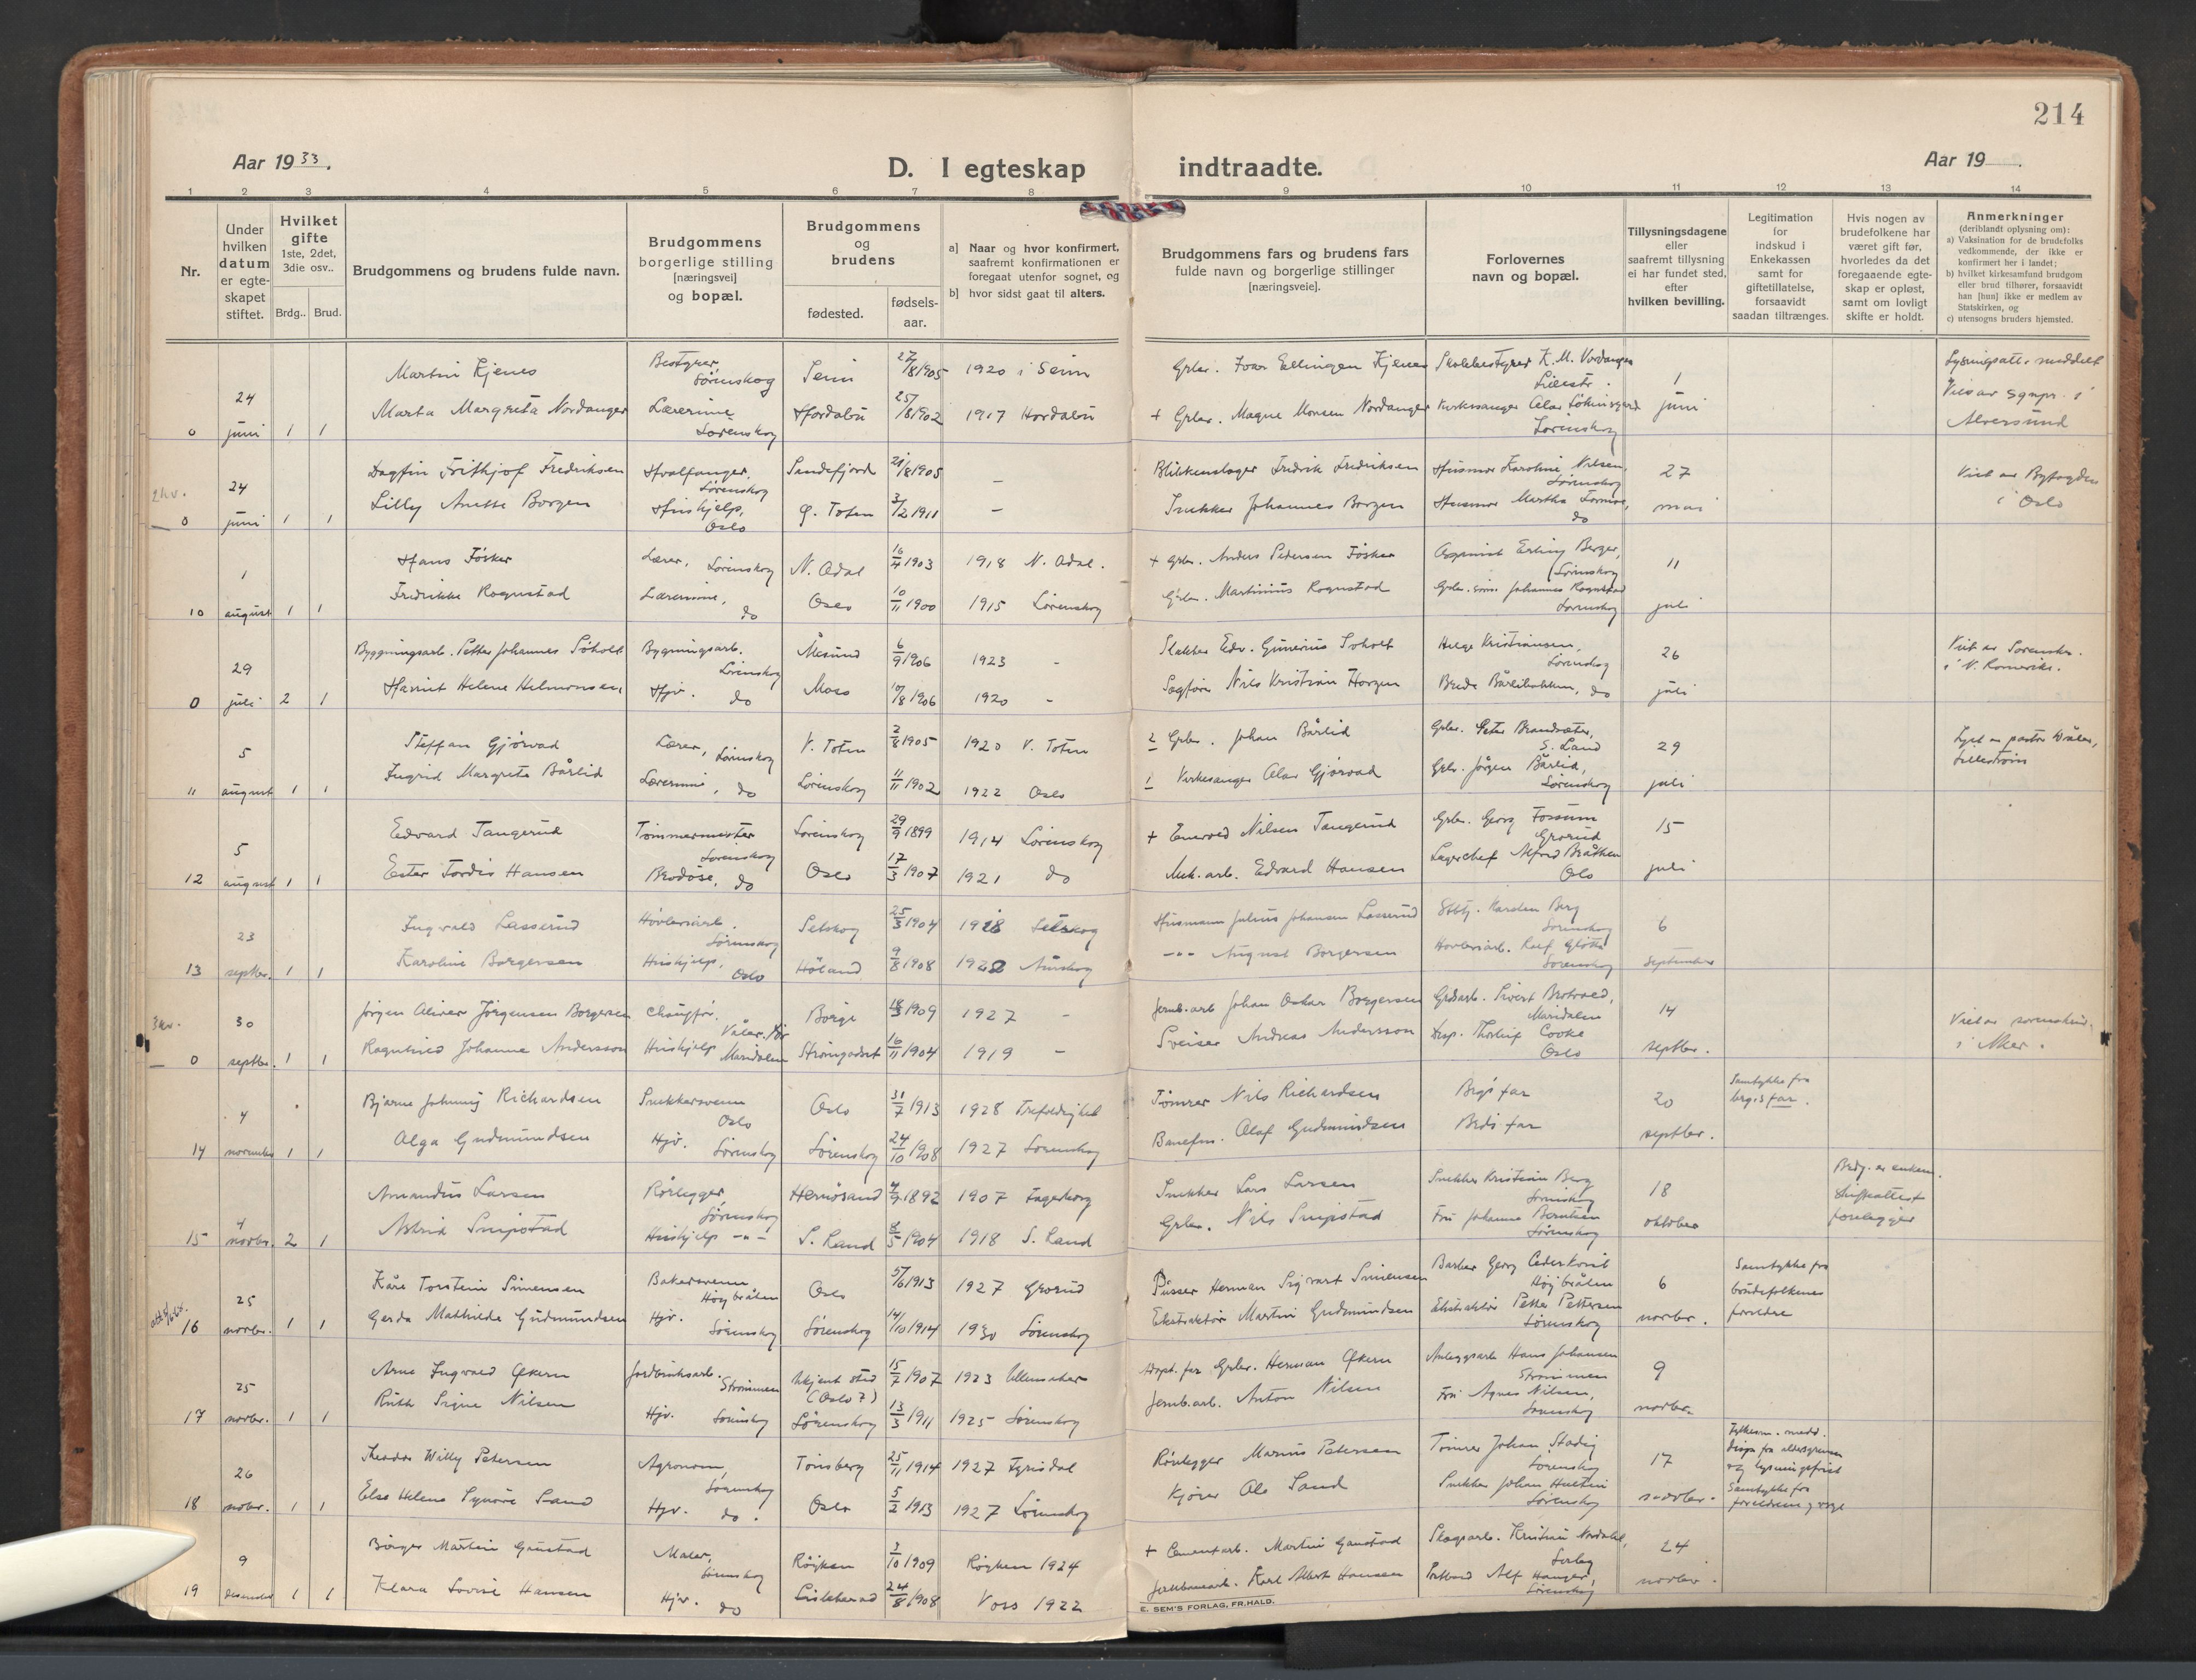 214
Aar 1933.
D. I egteskap indtraadte.
Aar 19
1 2 3 4 5 6 7 8 9 10 11 12 13 14
Nr.
Under hvilken datum er egteskapet stiftet.
Hvilket gifte 1ste, 2det, 3die osv..
Brdg.. Brud.
Brudgommens og brudens fulde navn.
Brudgommens borgerlige stilling [næringsvei] og bopæl.
Brudgommens og brudens
fødested.
fødsels-aar.
a] Naar og hvor konfirmert, saafremt konfirmationen er foregaat utenfor sognet, og
b] hvor sidst gaat til alters.
Brudgommens fars og brudens fars fulde navn og borgerlige stillinger [næringsveie].
Forlovernes navn og bopæl.
Tillysningsdagene eller saafremt tillysning ei har fundet sted, efter hvilken bevilling.
Legitimation for indskud i Enkekassen samt for giftetillatelse, forsaavidt saadan tiltrænges.
Hvis nogen av brudefolkene har været gift før, hvorledes da det foregaaende egteskap er opløst, samt om lovligt skifte er holdt.
Anmerkninger (deriblandt oplysning om):
a) Vaksination for de brudefolks vedkommende, der ikke er konfirmert her i landet;
b) hvilket kirkesamfund brudgom eller brud tilhører, forsaavidt han [hun] ikke er medlem av Statskirken, og
c) utensogns bruders hjemsted.
Martin Kjenes Bestyrer, Lørenskog Seim 27/8 1905 1920 i Seim
24 juni 0 1 1 Marta Margreta Nordanger Lærerinne Lørenskog 25/8 1902 1917
Skolebestyrer K. M. Nordanger Lillestr.
+ Grbr. Magne Monsen Nordanger Kirkesanger Lørenskog
1 juni
Alversund
2 kv.
24 juni 0 1 1 Dagfin Frithjof Fredriksen Hvalfanger, Lørenskog Sandefjord 21/8 1905 -
Lilly Anette Borgen Hushjelp, Oslo Ø. Toten 3/2 1911 -
Blikkenslager Fredrik Fredriksen Husmor Karoline Nilsen, Lørenskog
Snekker Johannes Borgen Husmor Martha do
27 mai
Viet av Byfogden i Oslo
1 august 10 1 1 Hans Fosker Lærer, Lørenskog N. Odal 16/4 1903 1918 N. Odal.
Fredrikke Rognstad Lærerinne, do Oslo 10/11 1900 1915 Lørenskog
+ Grbr. Anders Pedersen Fosker Erling Berger, Lørenskog
Grbr. Martinius Rognstad Johannes Rognstad Lørenskog
11 juli
29 juli 0 2 1 Bygningsarb. Petter Johannes Soholt Bygningsarb. Lørenskog 6/9 1906 1923 -
Harriet Helene Helmonsen Hjv. do Moss 10/8 1906 1920 -
Edv. Gunerius Soholt Helge Kristiansen, Lørenskog
Nils Kristian do
26 juli
i N. Romerike.
5 august 11 1 1 Steffan Gjørvad Lærer, Lørenskog V. Toten 2/8 1905 1920 V. Toten
Ingrid Margrete Bårlid Lærerinne, do Lørenskog 11/11 1902 1922 Oslo
2 Grbr. Johan Bårlid Grbr. Peter S. Land
1 Kirkesanger Olav Gjørvad Grbr. Jørgen Bårlid, Lørenskog
29 juli
Lillestrøm
5 august 12 1 1 Edvard Tangerud Tømmermester Lørenskog Lørenskog 29/9 1899 1914 Lørenskog
Ester Tordis Hansen do Oslo 17/3 1907 1921 do
+ Nilsen Tangerud Grbr. Georg Fossum Grorud
Mek. arb. Edvard Hansen Lagerchef Alfred Bråthen Oslo
15 juli
23 septbr. 13 1 1 Ingvald Lasserud Høvleriarb. Lørenskog Setskog 25/3 1904 1918 Setskog
Karoline Borgersen Hushjelp, Oslo Høland 9/8 1908 1922 Aurskog
Husmann Julius Johansen Lasserud Karsten Berg Lørenskog
-"- August Borgersen Høvleriarb. Lørenskog
6 september
3 kv.
30 septbr. 0 1 1 Jørgen Oliver Jørgensen Borgersen Borge 18/3 1909 1927 -
Ragnhild Johanne Andersson Hushjelp Maridalen Strømstad 16/11 1904 1919 -
Jernb.arb Johan Oskar Borgersen Sivert Maridalen
Sveiser Andreas Andersson Thorleif Cooke Oslo
14 septbr.
i Aker.
4 november 14 1 1 Bjarne Johnny Richardsen Snekkersvenn Oslo Oslo 31/7 1913 1928 Trefoldighet
Olga Gudmundsen Hjv. Lørenskog Lørenskog 24/10 1908 1927 Lørenskog
Tømrer Nils Richardsen Brg's far
Banefm. Olaf Gudmundsen Bruds far
20 septbr.
Samtykke fra brg.s far.
4 novbr. 15 2 1 Amandus Larsen Rørlegger, Lørenskog Hernøsand 4/9 1892 1907 Fagerborg
Astrid Snipstad Hushjelp -"- S. Land 8/5 1904 1918 S. Land
Snekker Lars Larsen Snekker Kristian Berg Lørenskog
Grbr. Nils Snipstad Fru Johanne Berntsen Lørenskog
18 oktober
Brdg. er enkem. Skifteattest foreligger
25 novbr. 16 1 1 Kåre Torstein Simensen Bakersvenn Høybråten Oslo 5/6 1913 1927 Grorud
Gerda Mathilde Gudmundsen Hjv. Lørenskog Lørenskog 14/10 1914 1930 Lørenskog
Pusser Herman Sigvart Simensen Barber Georg Høybråten
Ekstraktør Martin Gudmundsen Petter Pettersen Lørenskog
6 novbr.
Samtykke fra brudefolkenes foreldre
25 novbr. 17 1 1 Arne Ingvald Økern Jordbruksarb. Strømmen Ukjent sted (Oslo?) 15/7 1907 1923 Ullensaker
Ruth Signe Nilsen Hjv. Lørenskog Lørenskog 13/3 1911 1925 Lørenskog
Adopt. far Grbr. Herman Økern Anleggsarb Hans Johansen Strømmen
Jernb.arb. Anton Nilsen Fru Agnes Nilsen, Lørenskog
9 novbr.
26 nobr. 18 1 1 Theodor Willy Petersen Agronom, Lørenskog Tønsberg 25/11 1914 1927 Fyrisdal
Else Helene Synøve Sand Hjv. do. Oslo 5/2 1913 1927 Lørenskog
Rørlegger Marius Petersen Tømrer Johan Stadig Lørenskog
Kjører Ole Sand Snekker Johan Lørenskog
17 novbr.
Samtykke fra
9 desember 19 1 1 Børger Martin Gaustad Maler, Lørenskog Røyken 3/10 1909 Røyken 1924
Klara Lovise Hansen Hjv. do 24/8 1908 Voss 1922
+ Cementarb. Martin Gaustad Kristian Nordahl,
Karl Albert Hansen Postbud Alf Hanger, Lørenskog
24 novbr.
E. SEM'S FORLAG, FR.HALD.